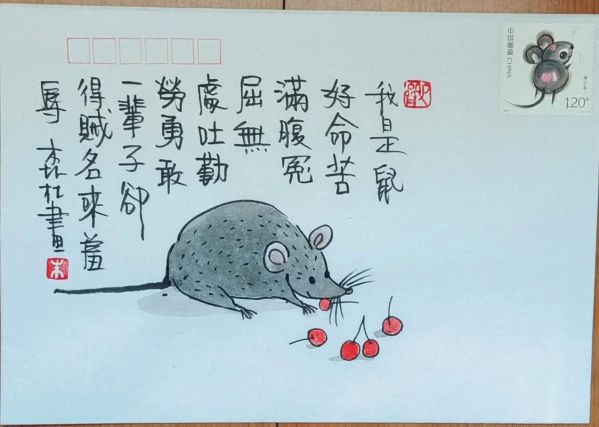 我是鼠
好命苦
滿腹冤
屈無
處吐勤
勞勇敢
一輩子卻
得賊名來羞
辱 森林畫
朱
中国邮政 CHINA
庚子年
1.20元